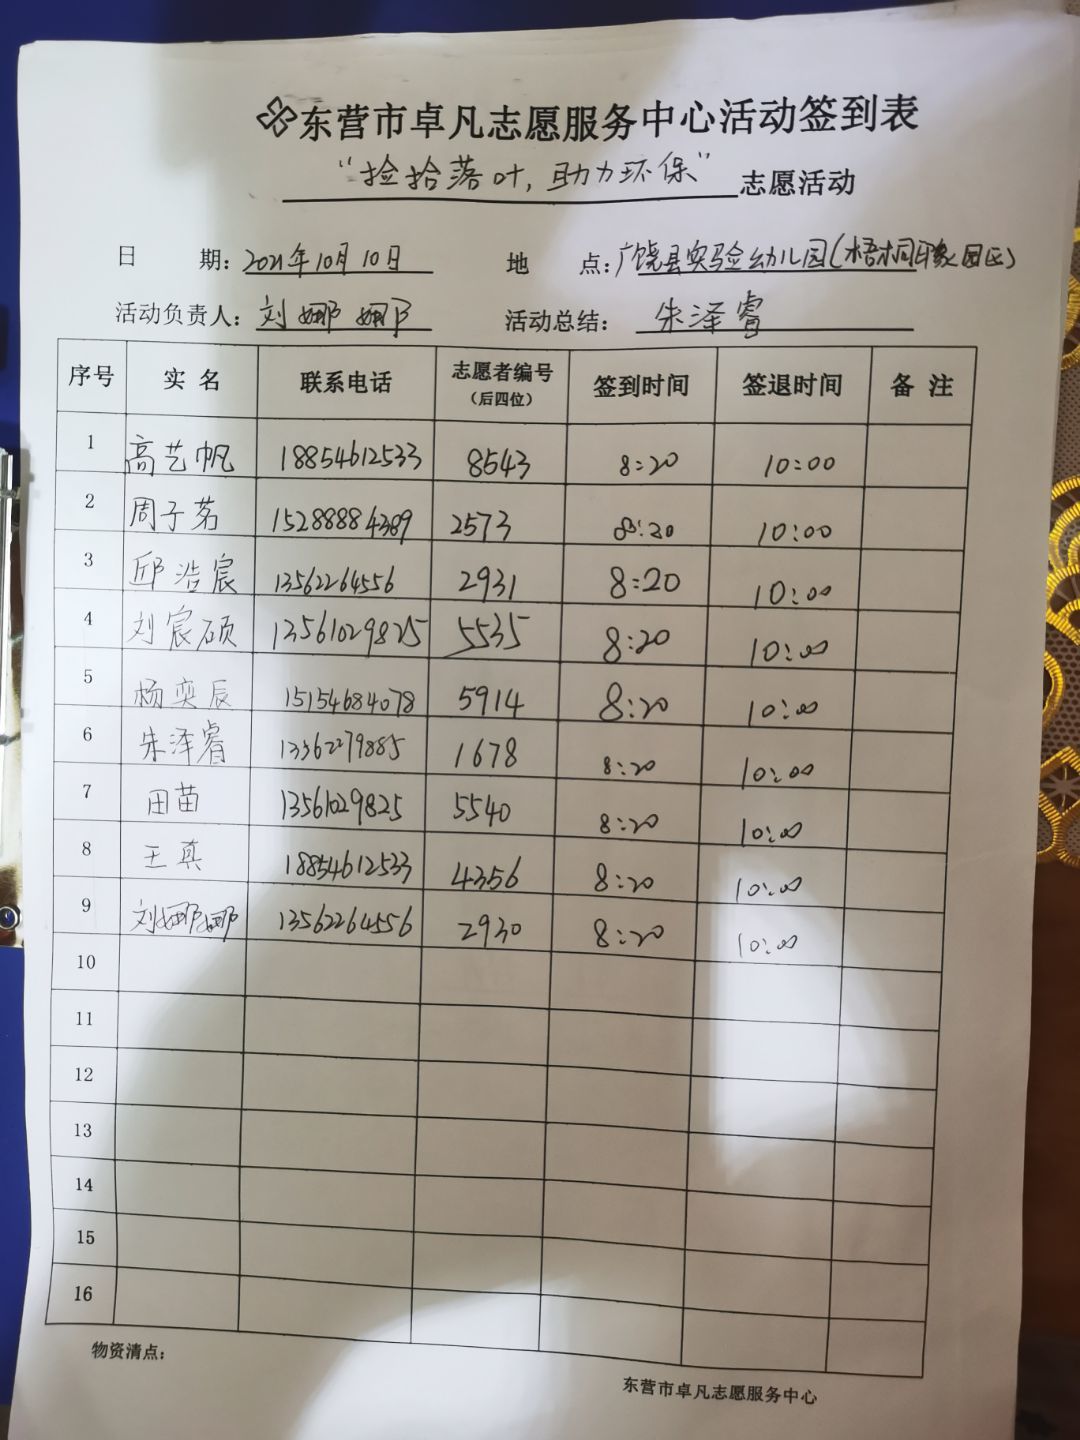 东营市卓凡志愿服务中心活动签到表
“捡拾落叶,助力环保”志愿活动
日期:2021年10月10日 地点:广饶县实验幼儿园(梧桐印象园区)
活动负责人:刘娜娜 活动总结:朱泽睿
序号 实名 联系电话 志愿者编号(后四位) 签到时间 签退时间 备注
1 高艺帆 18854612533 8543 8:20 10:00
2 周子茗 15288884389 2573 8:20 10:00
3 邱浩宸 13562264556 2931 8:20 10:00
4 刘宸硕 13561029825 5535 8:20 10:00
5 杨奕辰 15154684078 5914 8:20 10:00
6 朱泽睿 13362279885 1678 8:20 10:00
7 田苗 13561029825 5540 8:20 10:00
8 王真 18854612533 4356 8:20 10:00
9 刘娜娜 13562264556 2930 8:20 10:00
10
11
12
13
14
15
16
物资清点:
东营市卓凡志愿服务中心